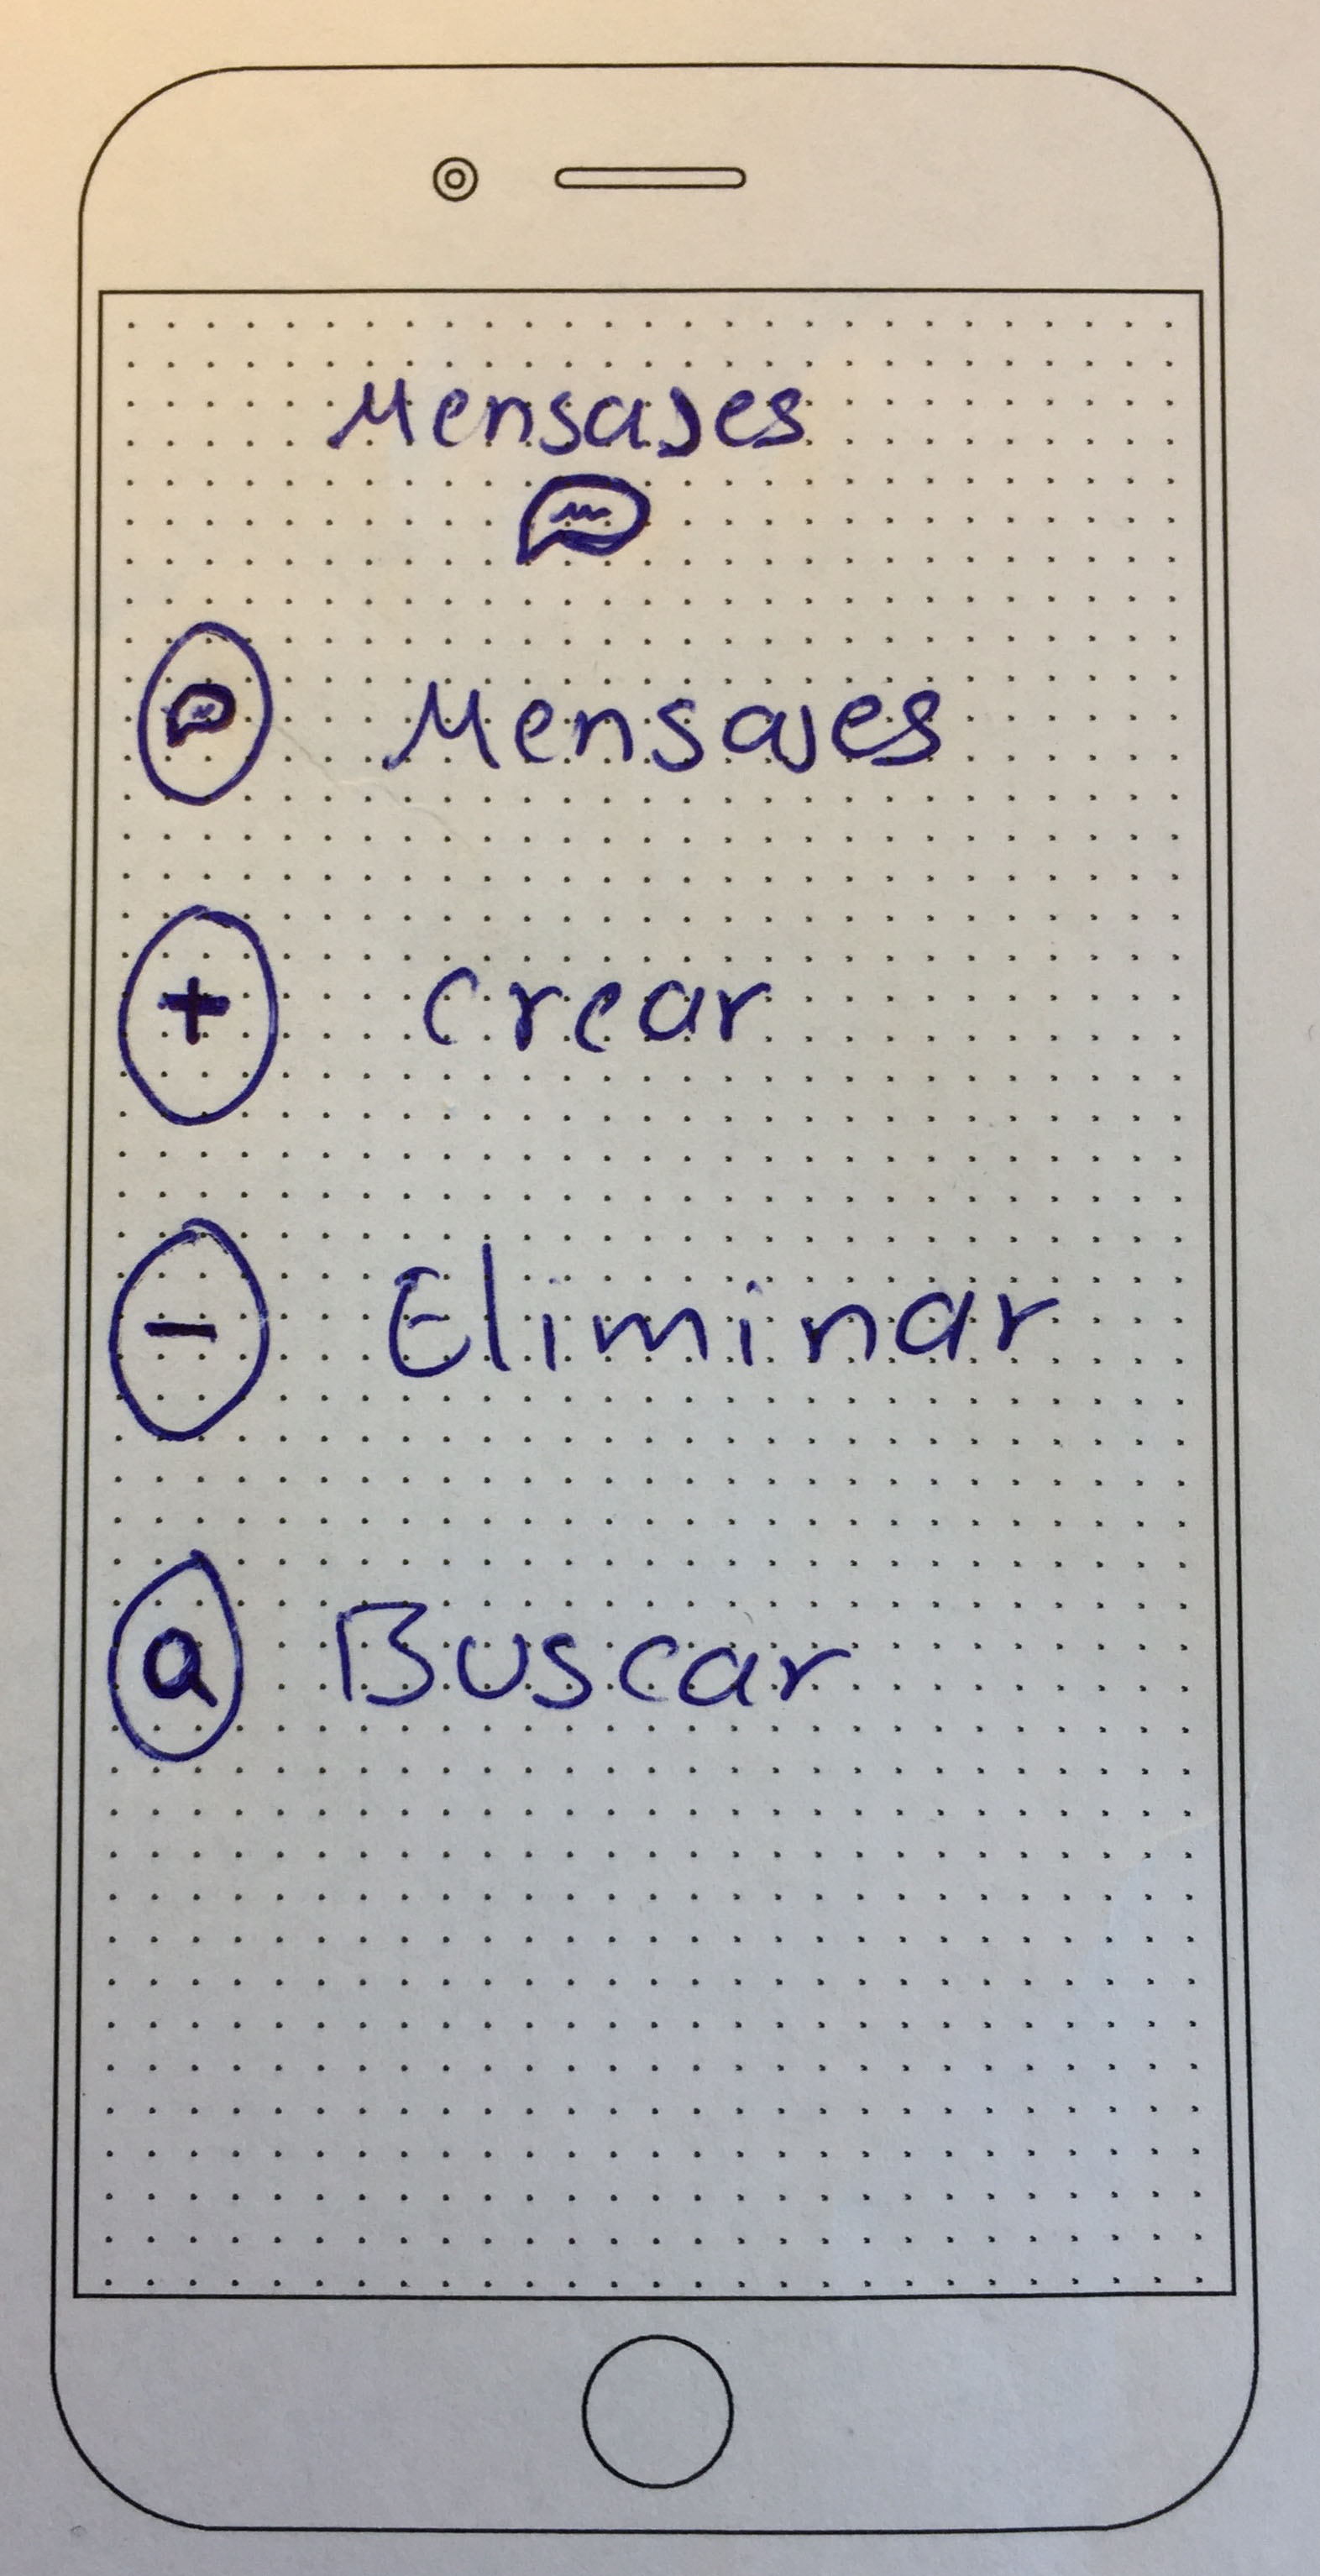 Mensajes
Mensajes
+ Crear
- Eliminar
Buscar